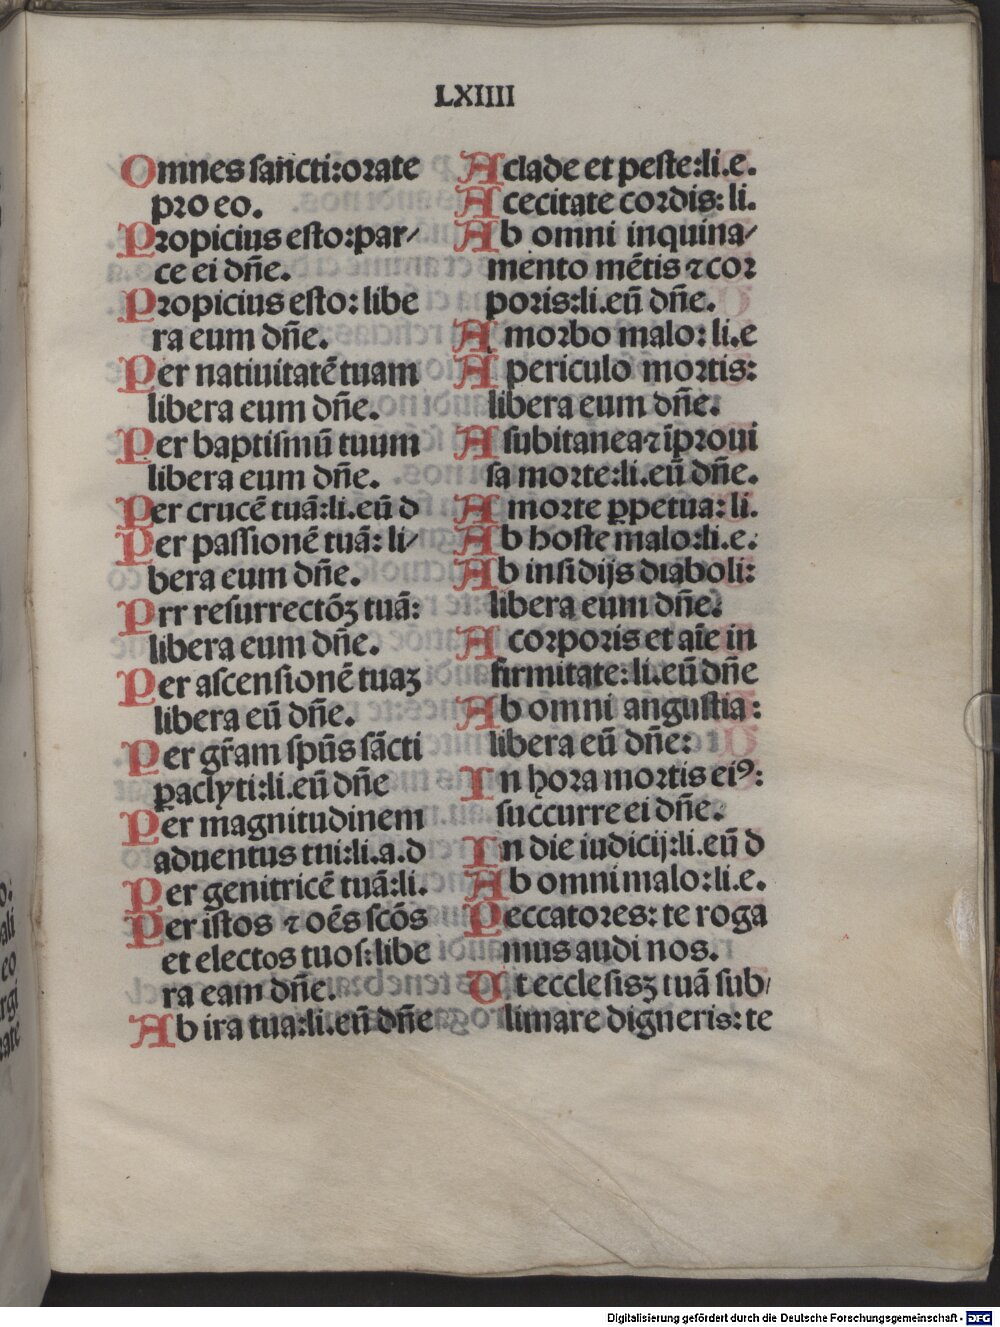 LXIIII
Omnes sancti:orate
pro eo.
Propicius esto:par/
ce ei dn̄e.
Propicius esto: libe
ra eum dn̄e.
Per natiuitatē tuam
libera eum dn̄e.
Per baptismū tuum
libera eum dn̄e.
Per crucē tuā:li.eū d
Per passionē tuā: li/
bera eum dn̄e.
Prr resurrectōꝫ tuā:
libera eum dn̄e.
Per ascensionē tuaꝫ
libera eū dn̄e.
Per gr̄am spūs sācti
ꝑaclyti:li.eū dn̄e
Per magnitudinem
aduentus tui:li.a.d
Per genitricē tuā:li.
Per istos ⁊ oēs scōs
et electos tuos:libe
ra eam dn̄e.
Ab ira tua:li.eū dn̄e
A clade et peste:li.e.
A cecitate cordis: li.
Ab omni inquina/
mento mētis ⁊ cor
poris:li.eū dn̄e.
A morbo malo: li.e
A periculo mortis:
libera eum dn̄e.
A subitanea ⁊ īproui
sa morte:li.eū dn̄e.
A morte ꝑpetua: li.
Ab hoste malo:li.e.
Ab insidijs diaboli:
libera eum dn̄e.
A corporis et aīe in
firmitate: li.eū dn̄e
Ab omni angustia:
libera eū dn̄e:
In hora mortis eiꝰ:
succurre ei dn̄e.
In die iudicij:li.eū d
Ab omni malo:li.e.
Peccatores: te roga
mus audi nos.
Ut ecclesisꝫ tuā sub/
limare digneris: te
o:
ali
co
rgi
nate
Digitalisierung gefördert durch die Deutsche Forschungsgemeinschaft - DFG